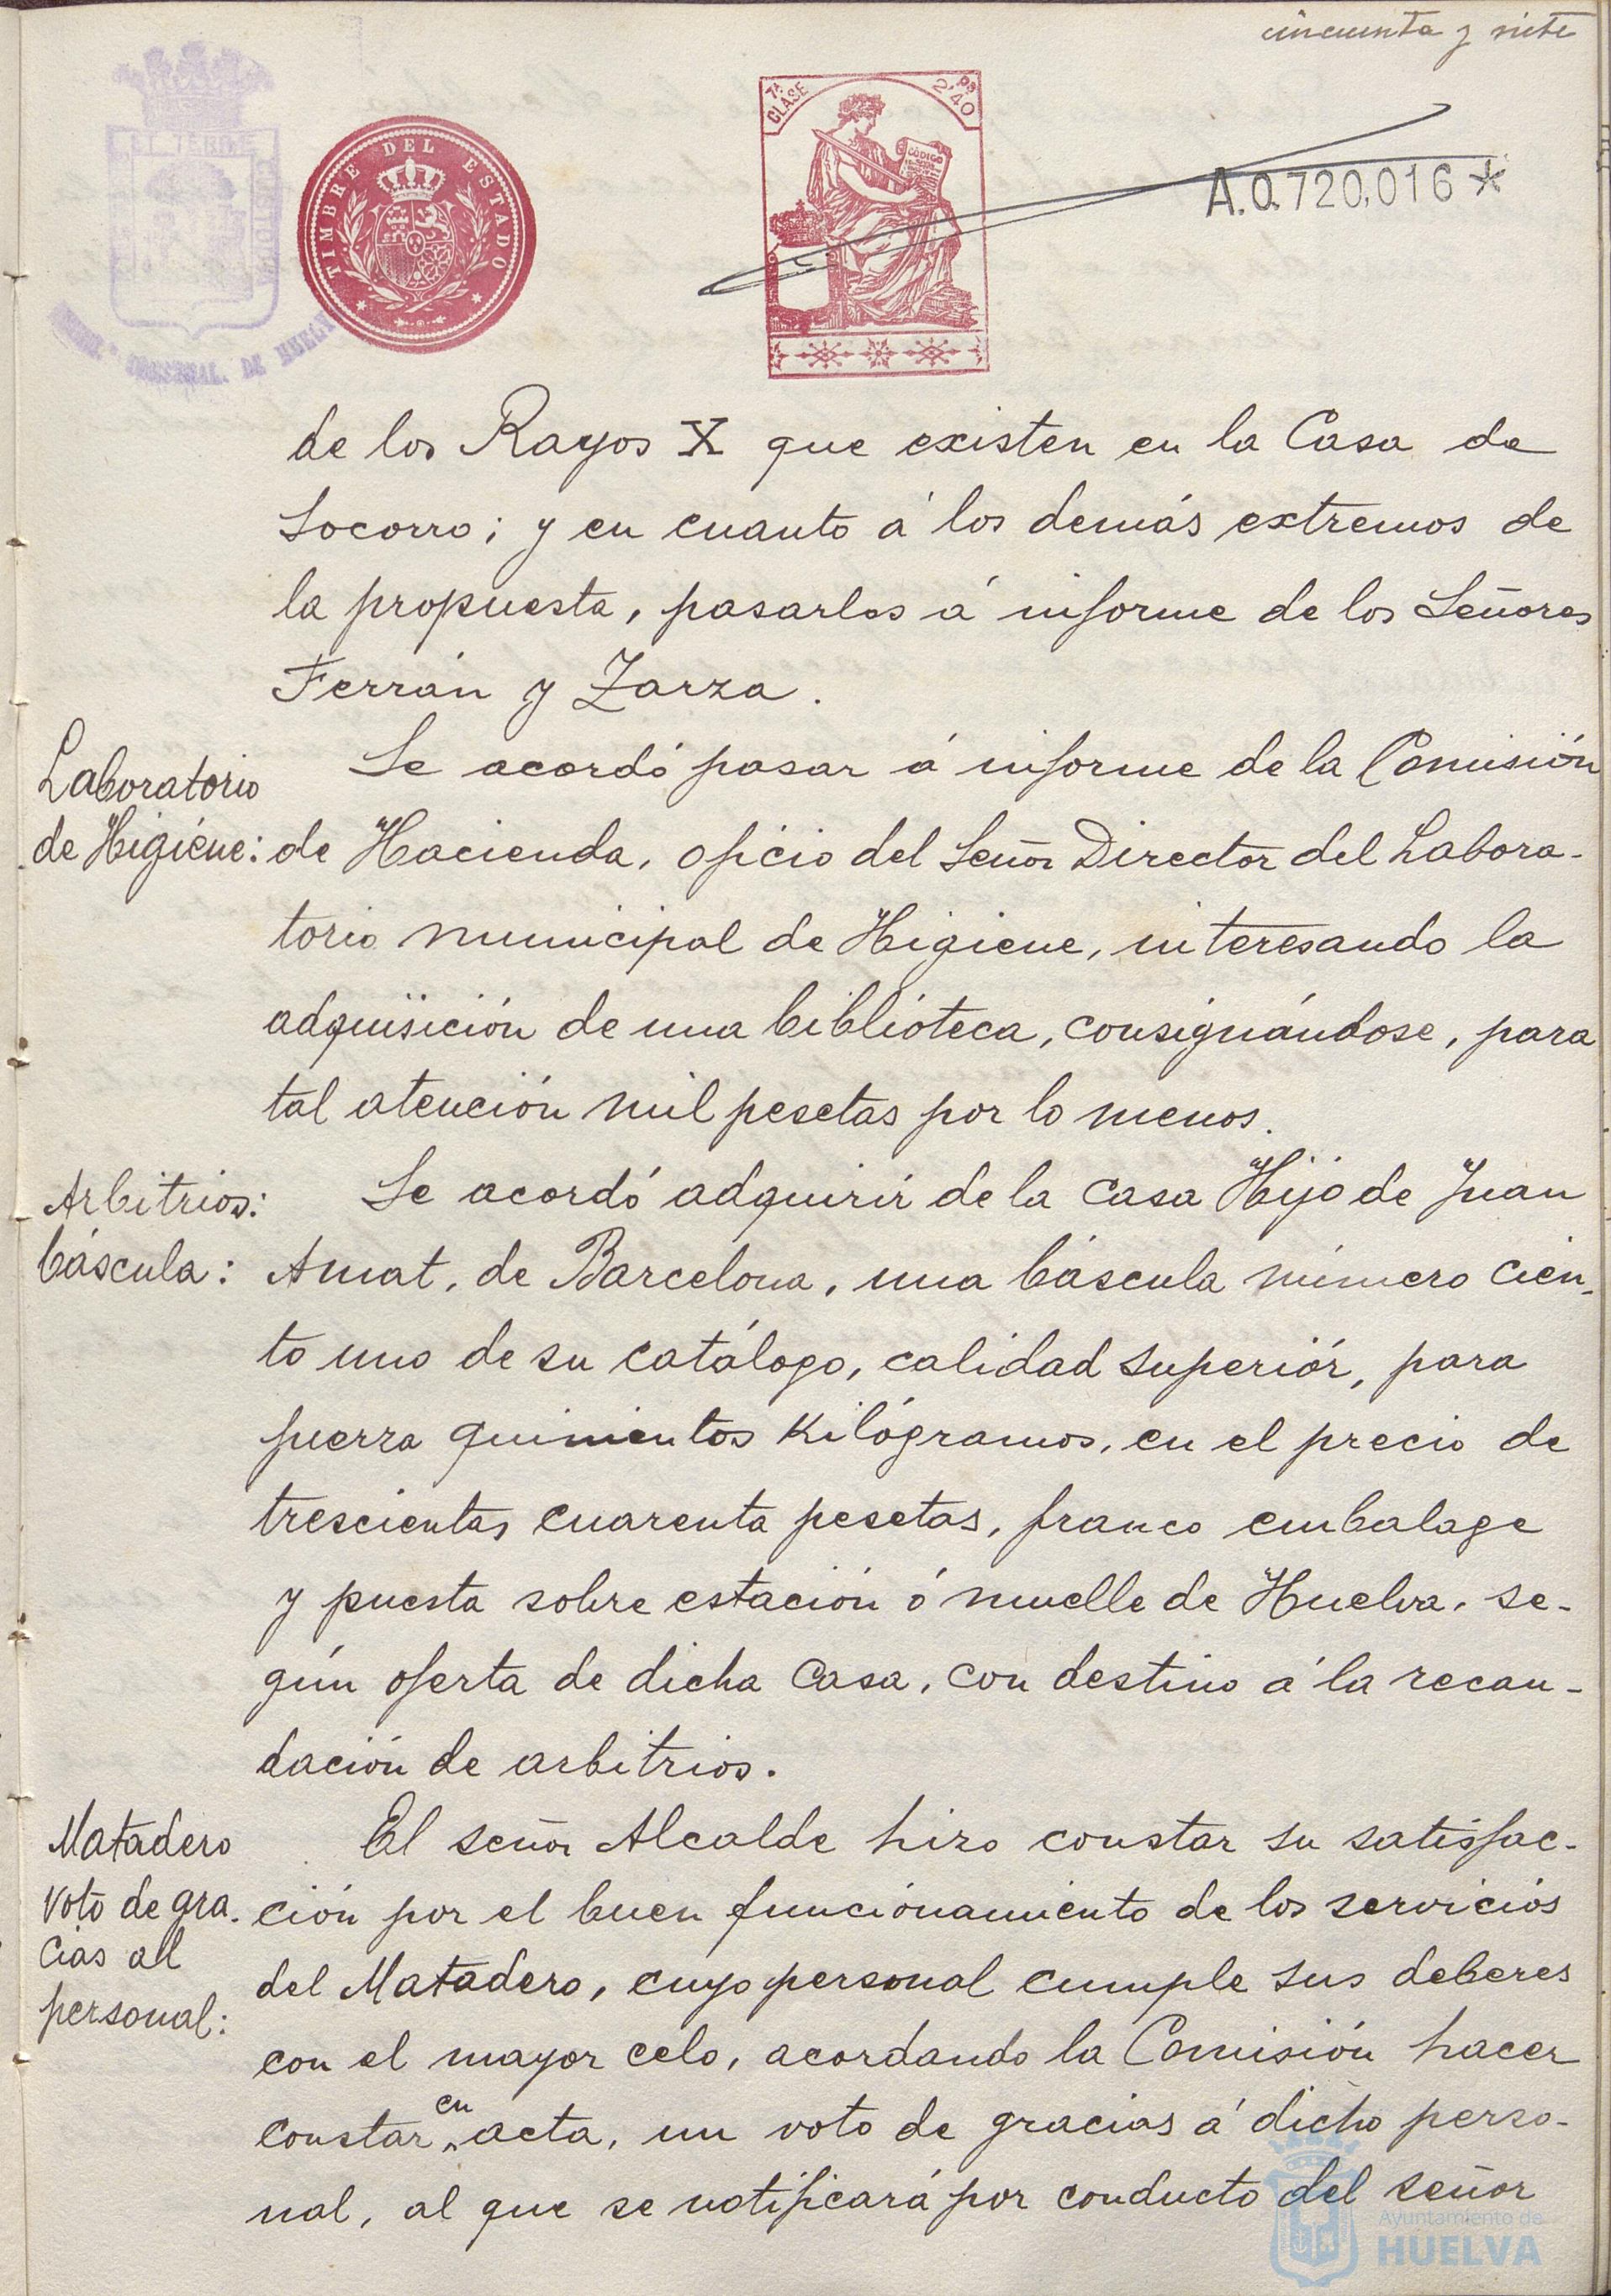 cincuenta y siete
7ª CLASE
2'40 Ps
CÓDIGO
TIMBRE DEL ESTADO
A.0.720,016*
DE HUELVA
de los Rayos X que existen en la Casa de
Socorro; y en cuanto á los demás extremos de
la propuesta, pasarlos á informe de los Señores
Ferrán y Zarza.
Laboratorio
de Higiéne:
Se acordó pasar á informe de la Comisión
de Hacienda, oficio del Señor Director del Labora-
torio municipal de Higiene, interesando la
adquisición de una biblioteca, consignándose, para
tal atención mil pesetas por lo menos.
Arbitrios:
báscula:
Se acordó adquirir de la casa Hijo de Juan
Amat, de Barcelona, una báscula número cien-
to uno de su catálogo, calidad superiór, para
fuerza quinientos kilógramos, en el precio de
trescientas cuarenta pesetas, franco embalage
y puesta sobre estación ó muelle de Huelva, se-
gún oferta de dicha Casa, con destino á la recau-
dación de arbitrios.
Matadero
voto de gra-
cias al
personal:
El señor Alcalde hizo constar su satisfac-
ción por el buen funcionamiento de los servicios
del Matadero, cuyo personal cumple sus deberes
con el mayor celo, acordando la Comisión hacer
constar en acta, un voto de gracias á dicho perso-
nal, al que se notificará por conducto del señor
Ayuntamiento de
HUELVA